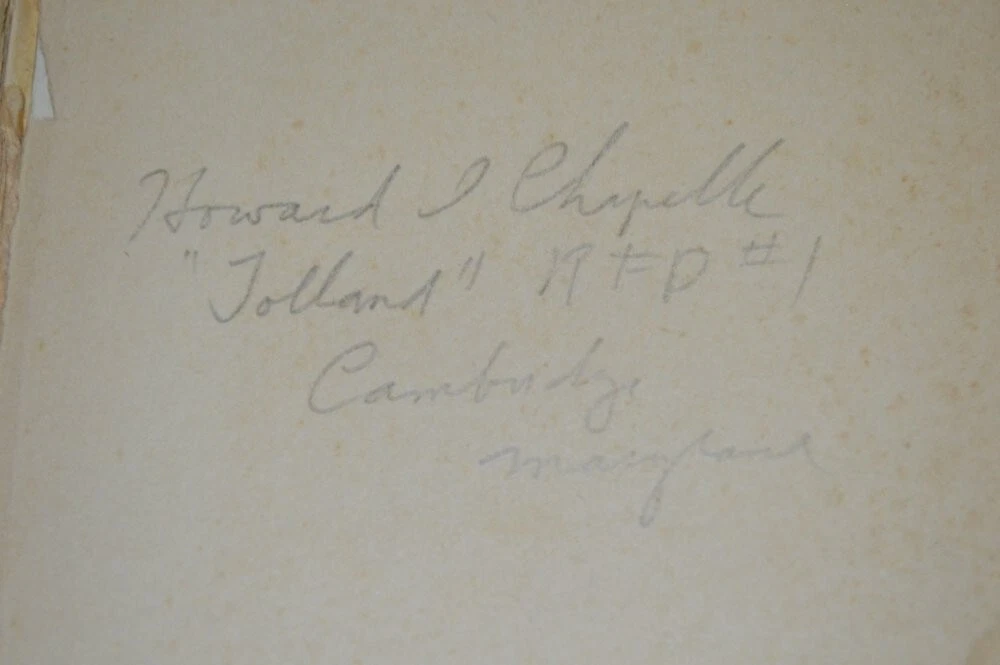 Howard I Chapelle
"Tolland" RFD #1
Cambridge
Maryland